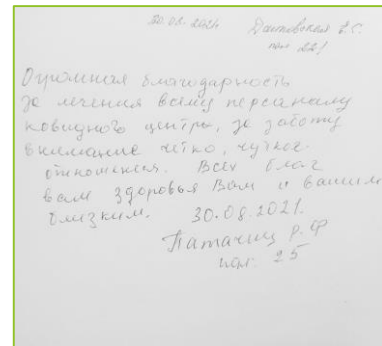 30.08.2021 Дашковская Е.С.
пал 22!
Огромная благодарность
за лечения всему персоналу
ковидного центра, за заботу
внимание чётко, чуткое
отношения. Всех благ
вам здоровья Вам и вашим
близким. 30.08.2021.
Р. Ф
пал. 25